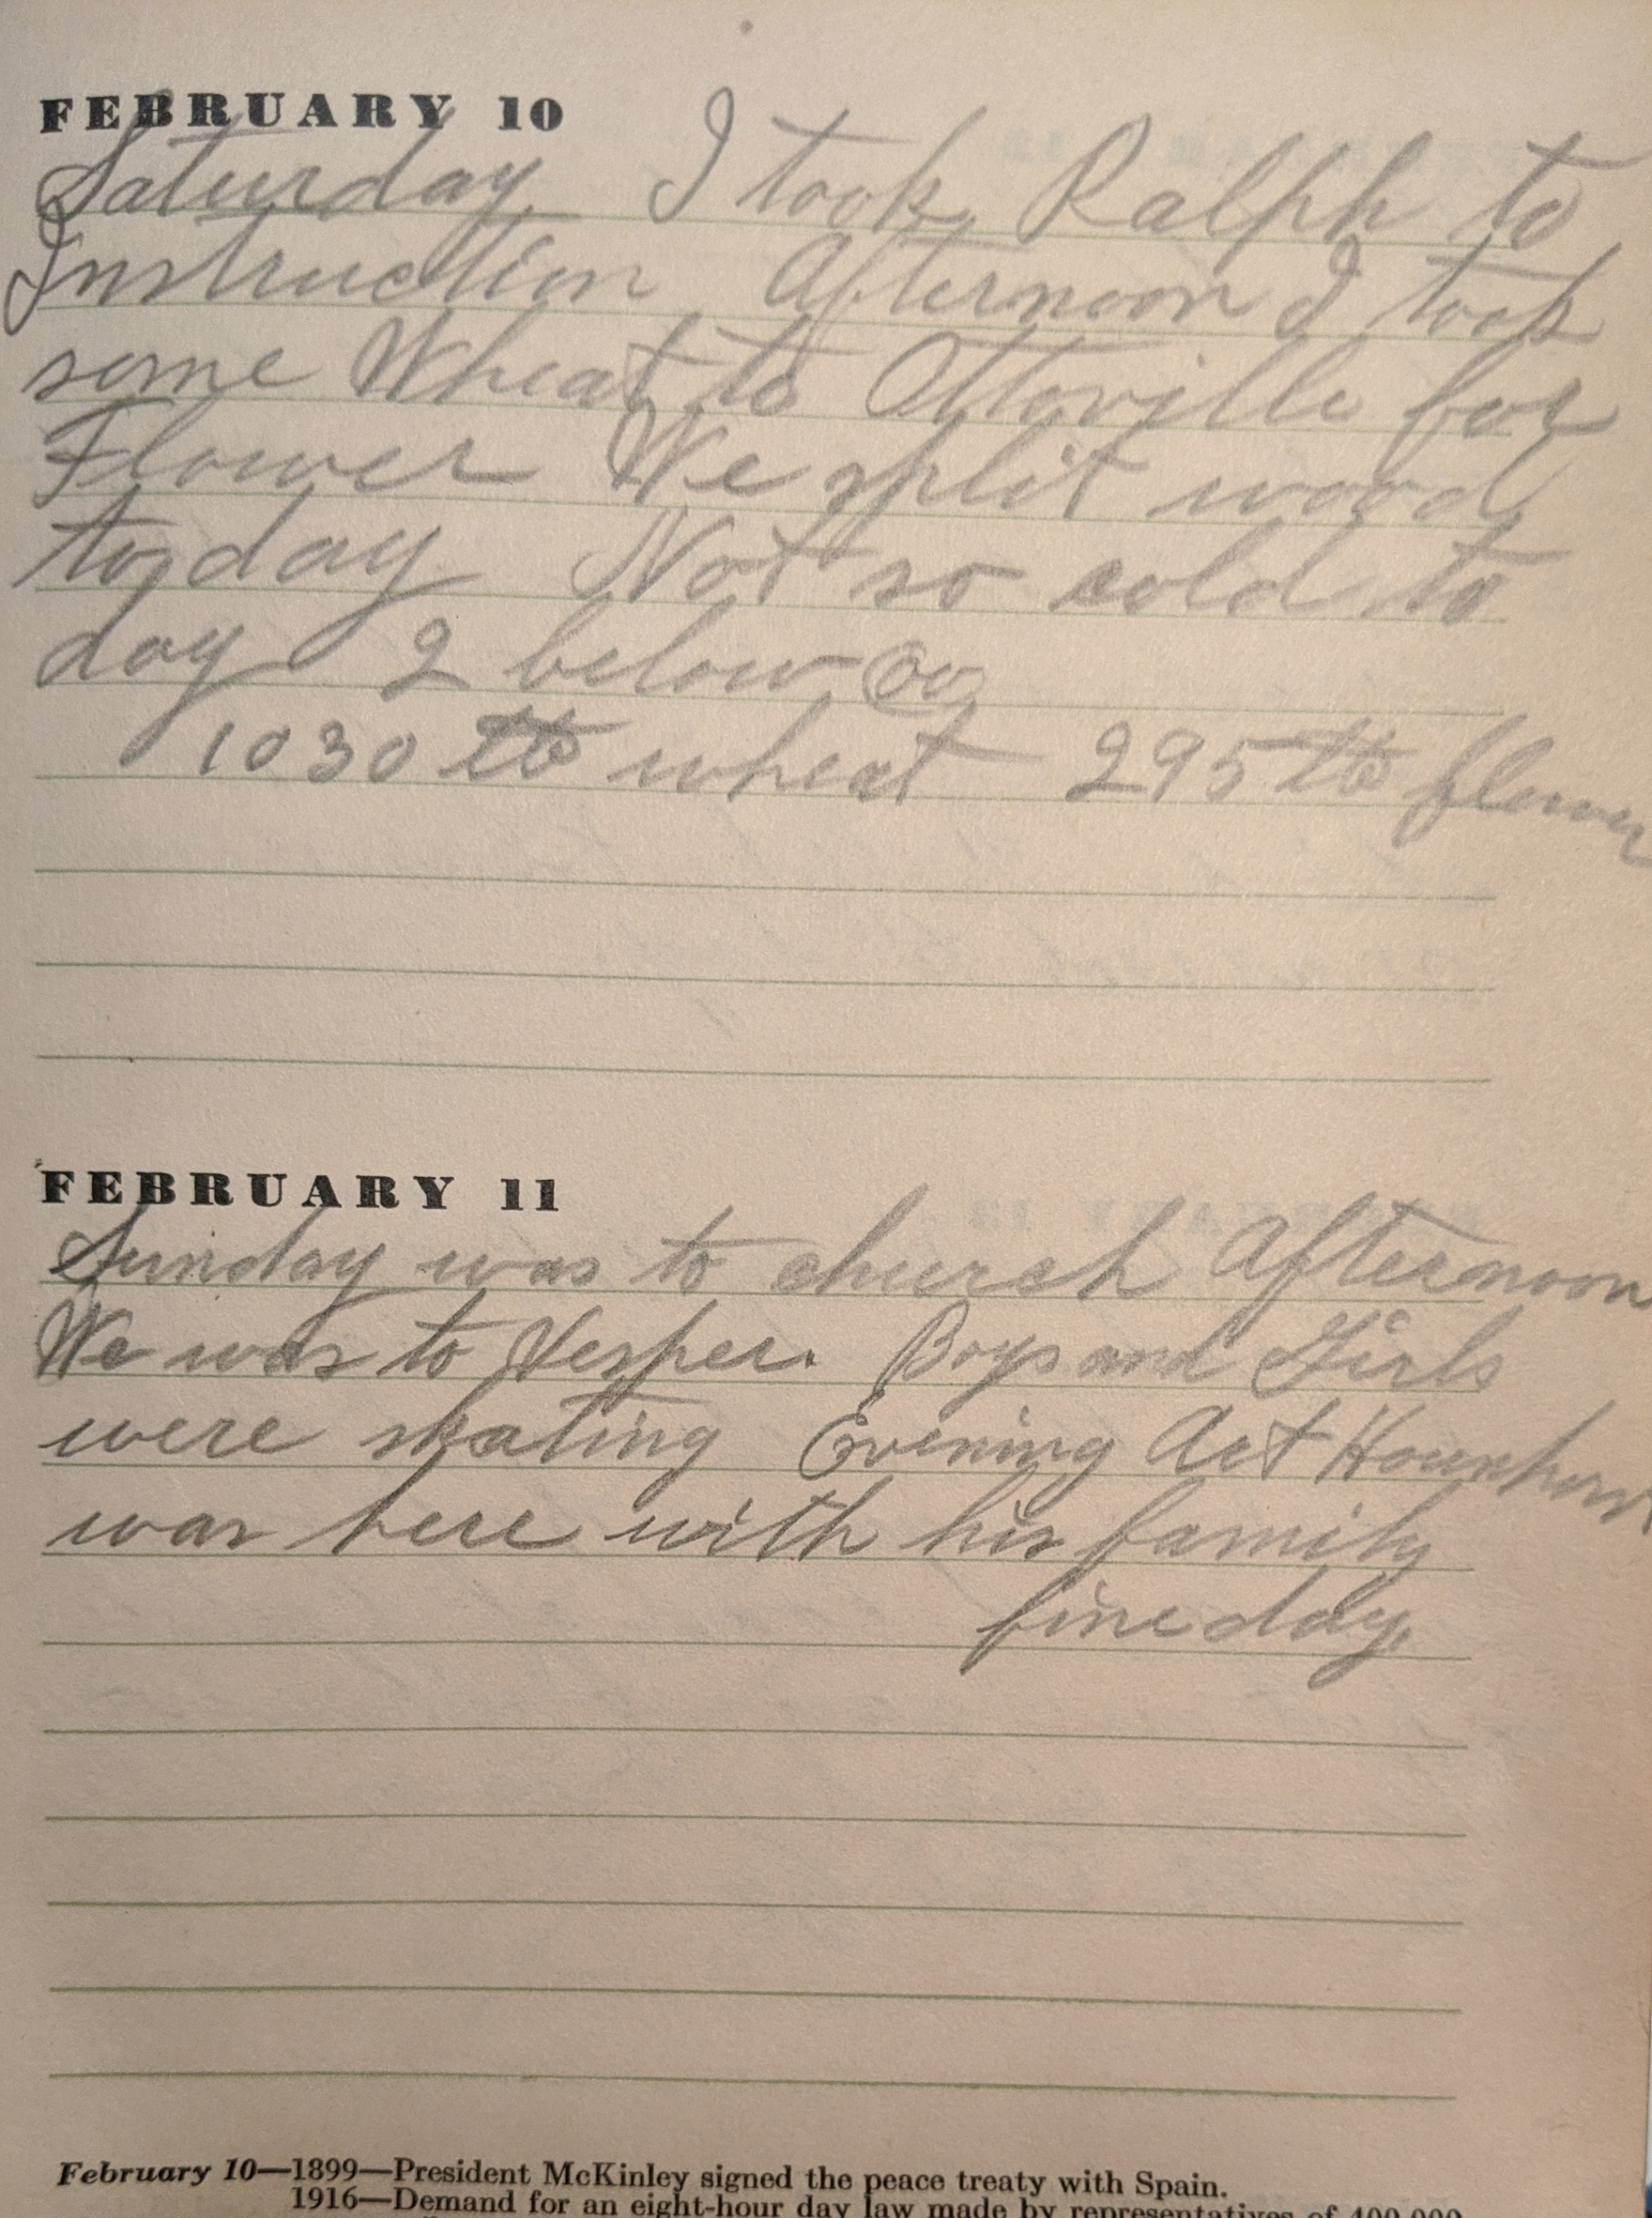 FEBRUARY 10
Saturday I took Ralph to
Instruction Afternoon I took
some Wheat to Ottoville for
Flower We split wood
to day Not so cold to
day 2 below
1030 lb wheat 295 lb flower
FEBRUARY 11
Sunday was to church Afternoon
We was to Vesper. Boys and Girls
were skating Evening Art
was here with his family
fine day.
February 10—1899—President McKinley signed the peace treaty with Spain.
1916—Demand for an eight-hour day law made by representatives of 400,000